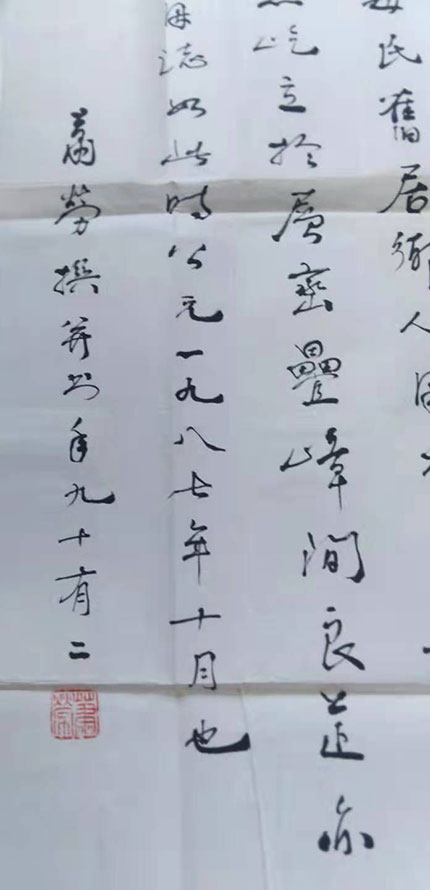 氏舊居人
屹立於層巒疊嶂間良亦
誌如此時公元一九八七年十月也
蕭勞撰并书年九十有二
蕭勞